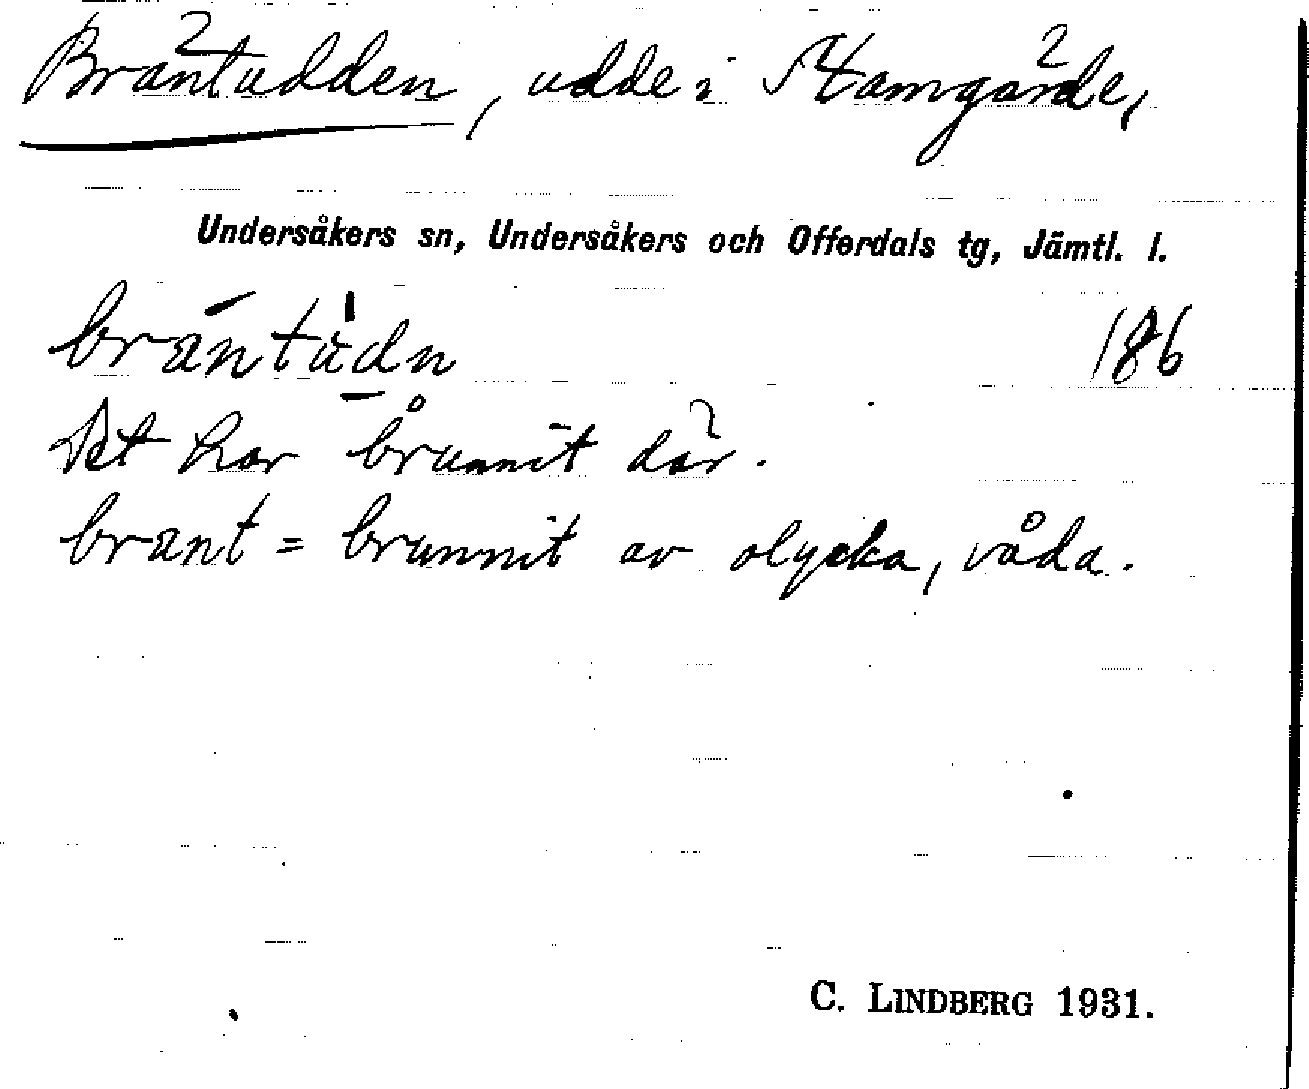 Bräntudden, udde i Stamgärde,
Undersåkers sn, Undersåkers och Offerdals tg, Jämtl. l.
bräntùdn 186
Det har brunnit där.
brant = brunnit av olycka, våda.
C. LINDBERG 1931.